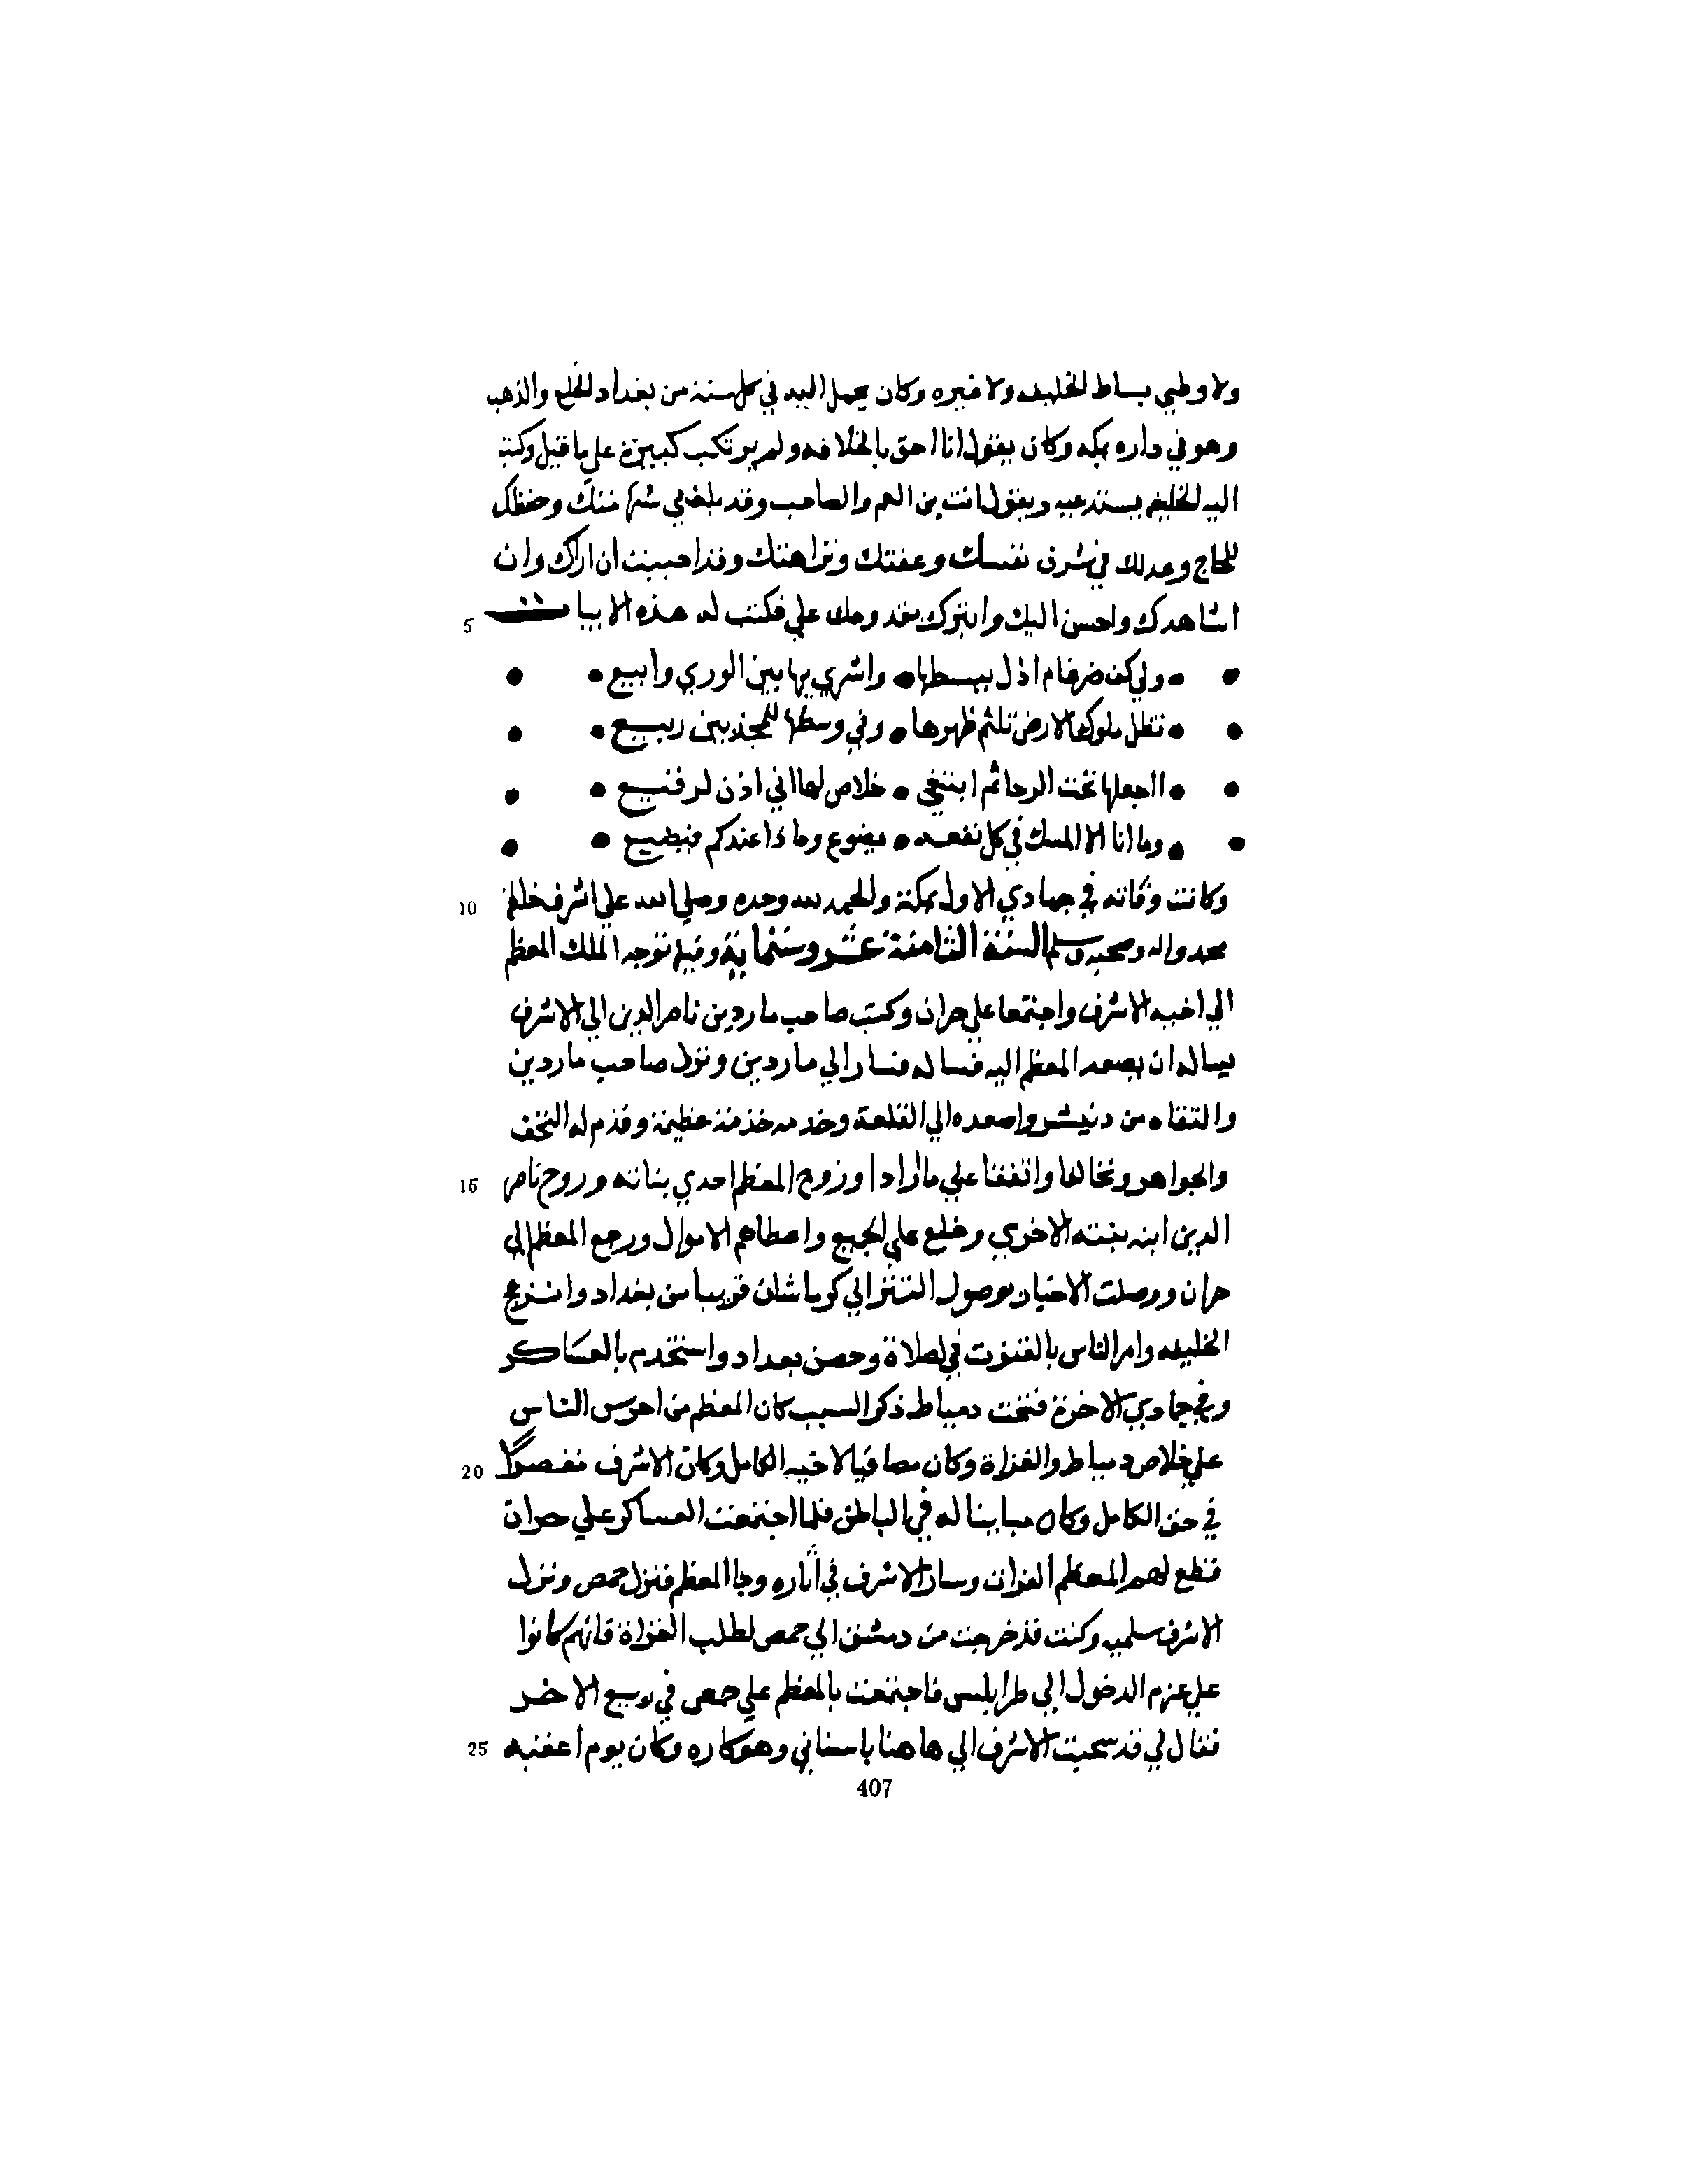 ولا وطي بساط الخليفه ولا غيره وكان يحمل اليه في كل سنة من بغداد الخلع والذهب
وهو في داره بمكه وكان يقول انا احق بالخلافه ولم يرتكب كبيرة علي ما قيل وكتب
اليه الخليفه يستدعيه ويقول انت بن العم والصاحب وقد بلغني شهامتك وحفظك
للحاج وعدلك في شرف نفسك وعفتك ونزاهتك وقد احببت ان اراك وان
اشاهدك واحسن اليك واتبرك بقدومك علي فكتب له هذه الابيات
5
ولي كف ضرغام اذل ببسطها • واشري بها بين الوري وابيع
تظل ملوك الارض تلثم ظهرها • وفي وسطها للمجذبين ربيع
ااجعلها تحت الرحا ثم ابتغي • خلاص لها اني اذن لرقيع
وما انا الا المسك في كل نفعه • يضوع وما ذا عندكم فيضيع
وكانت وفاته في جمادي الاول بمكة والحمد لله وحده وصلي الله علي اشرف خلقه
10
محمد واله وصحبه وسلم السنة الثامنة عشر وستماية وفيها توجه الملك المعظم
الي اخيه الاشرف واجتمعا علي حران وكتب صاحب ماردين ناصر الدين الي الاشرف
يساله ان يصعد المعظم اليه فساله فسار الي ماردين ونزل صاحب ماردين
والتقاه من دنيسر واصعده الي القلعة وخدمه خدمة عظيمة وقدم له التحف
والجواهر وتحالفا واتفقا علي ما ارادا وزوج المعظم احدي بناته وزوج ناصر
15
الدين ابنه بنته الاخري وخلع علي الجميع واعطاهم الاموال ورجع المعظم الي
حران ووصلت الاخبار بوصول التتر الي كرماشان قريبا من بغداد وانزعج
الخليفه وامر الناس بالقنوت في الصلاة وحصن بغداد واستخدم بالعساكر
وفي جمادي الاخرة فتحت دمياط ذكر السبب كان المعظم من احرص الناس
علي خلاص دمياط والغزاة وكان مصافيا لاخيه الكامل وكان الاشرف مقصرا
20
في حق الكامل وكان مباينا له في الباطن فلما اجتمعت العساكر علي حران
قطع لهم المعظم الفرات وسار الاشرف في اثاره وجا المعظم فنزل حمص ونزل
الاشرف سلميه وكنت قد خرجت من دمشق الي حمص لطلب الغزاة فانهم كانوا
علي عزم الدخول الي طرابلس فاجتمعت بالمعظم علي حمص في ربيع الاخر
فقال لي قد سحبت الاشرف الي هاهنا باسناني وهو كاره وكان يوم اعتبه
25
407